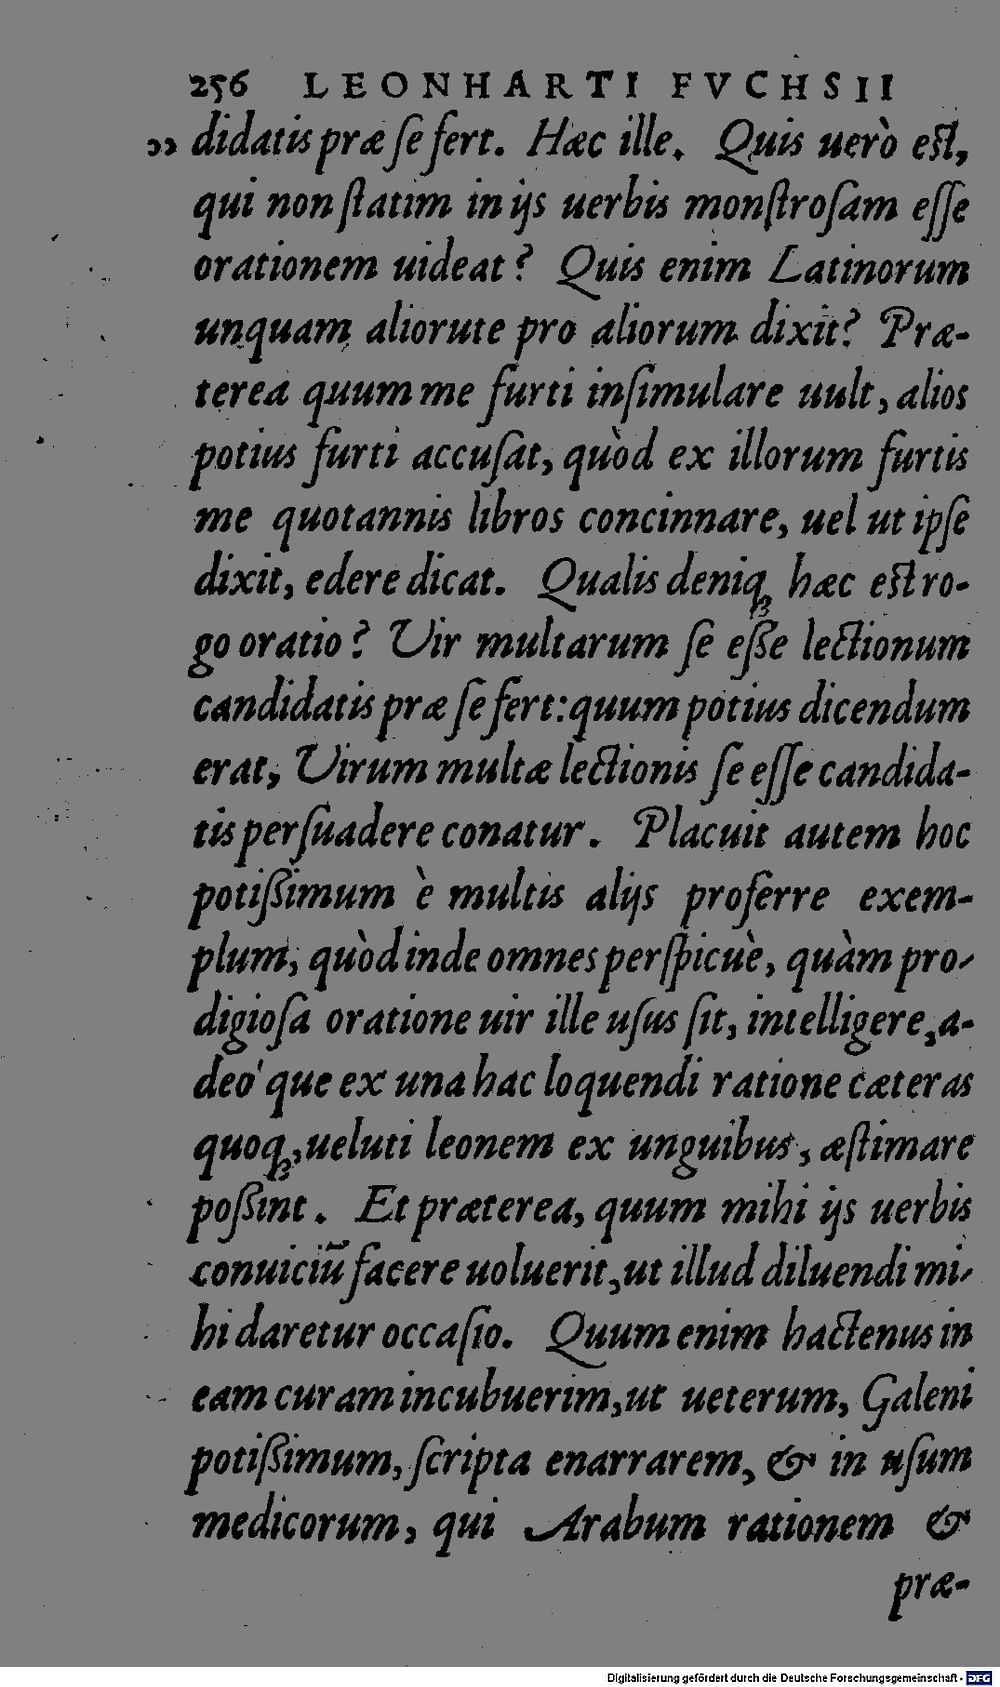 256 LEONHARTI FVCHSII
„ didatis præ ſe fert. Hæc ille. Quis uerò eſt,
qui non ſtatim in ijs uerbis monſtroſam eſſe
orationem uideat? Quis enim Latinorum
unquam aliorute pro aliorum dixit? Præ-
terea quum me furti inſimulare uult, alios
potius furti accuſat, quòd ex illorum furtis
me quotannis libros concinnare, uel ut ipſe
dixit, edere dicat. Qualis deniqꝫ hæc eſt ro-
go oratio? Vir multarum ſe eſſe lectionum
candidatis præ ſe fert: quum potius dicendum
erat, Virum multæ lectionis ſe eſſe candida-
tis perſuadere conatur. Placuit autem hoc
potiſsimum è multis alijs proferre exem-
plum, quòd inde omnes perſpicuè, quàm pro-
digioſa oratione uir ille uſus ſit, intelligere, a-
deo'que ex una hac loquendi ratione cæteras
quoqꝫ, ueluti leonem ex unguibus, æſtimare
poſsint. Et præterea, quum mihi ijs uerbis
conuiciũ facere uoluerit, ut illud diluendi mi-
hi daretur occaſio. Quum enim hactenus in
eam curam incubuerim, ut ueterum, Galeni
potiſsimum, ſcripta enarrarem, & in uſum
medicorum, qui Arabum rationem &
præ-
Digitalisierung gefördert durch die Deutsche Forschungsgemeinschaft - DFG